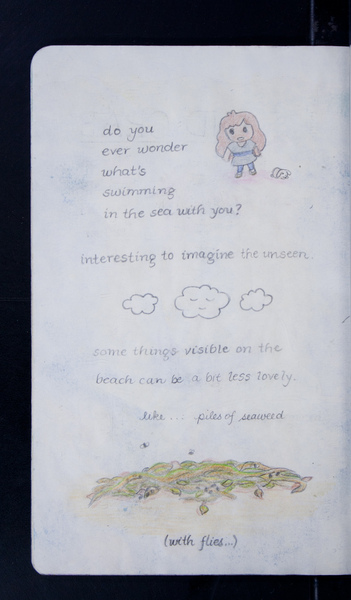 do you
ever wonder
what's
swimming
in the sea with you?
interesting to imagine the unseen.
some things visible on the
beach can be a bit less lovely.
like... piles of seaweed
(with flies...)